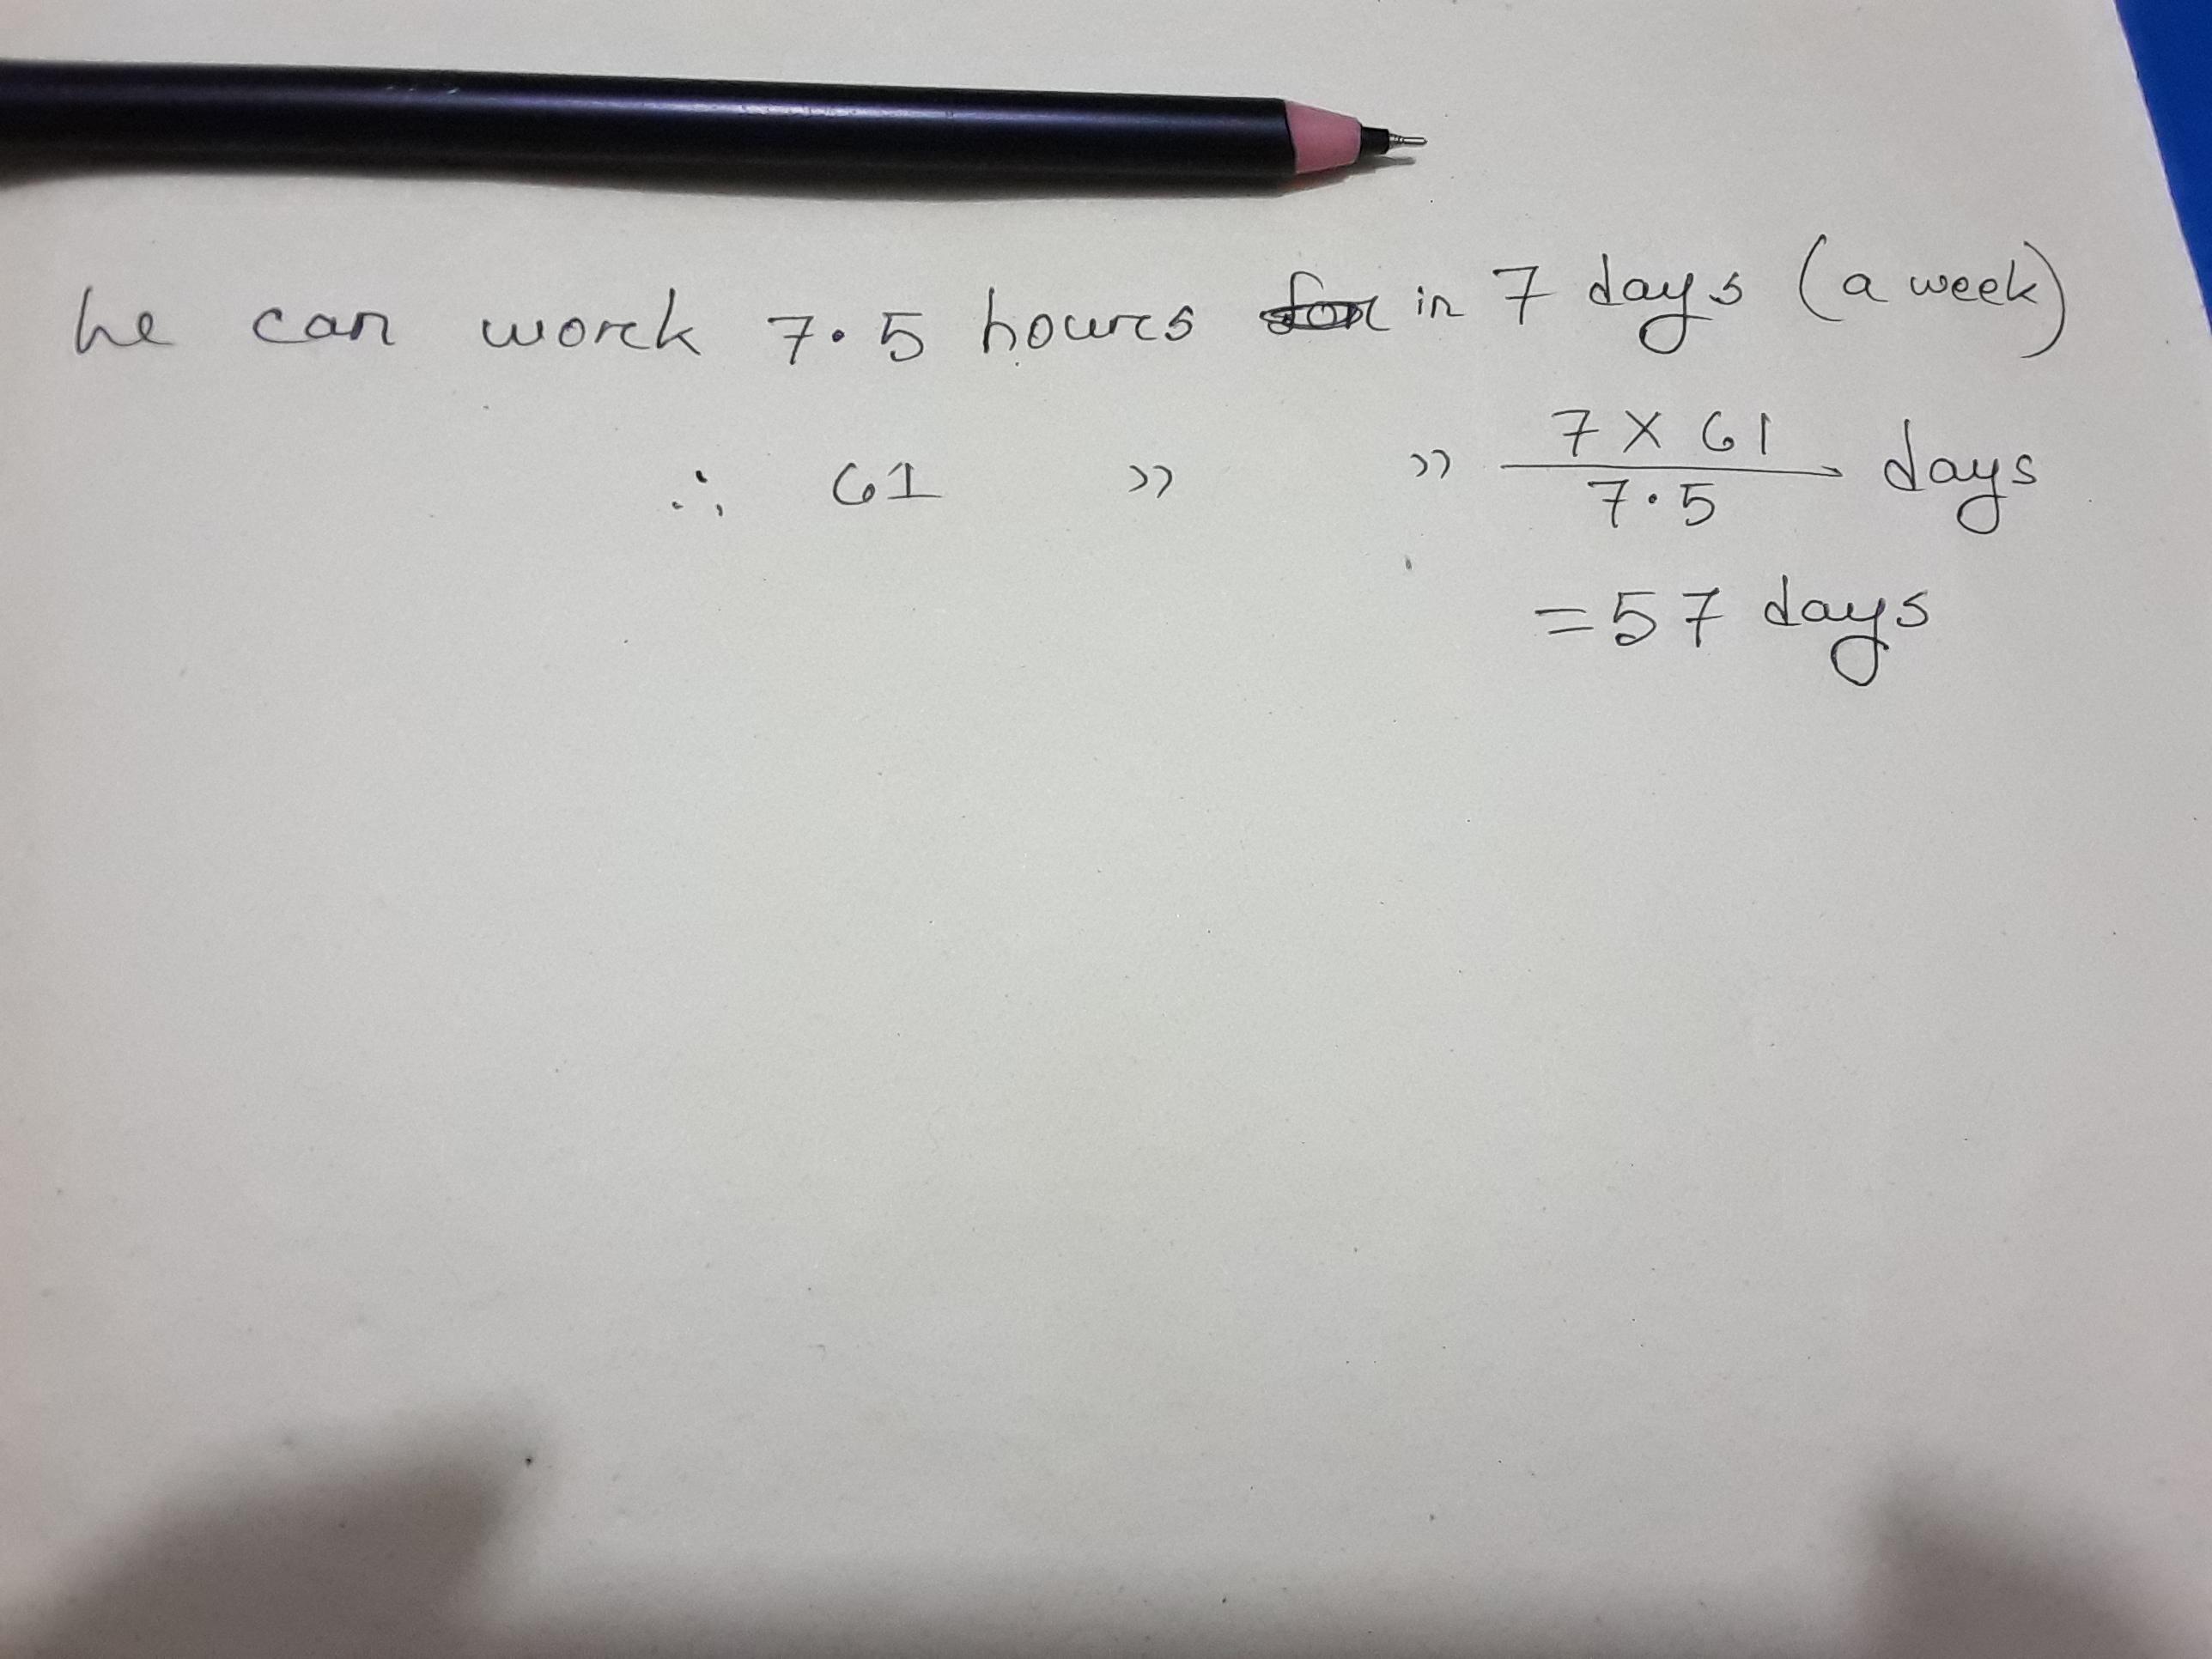 he can work 7.5 hours for in 7 days (a week)
∴ 61 " " 7 × 61 / 7.5 days
= 57 days